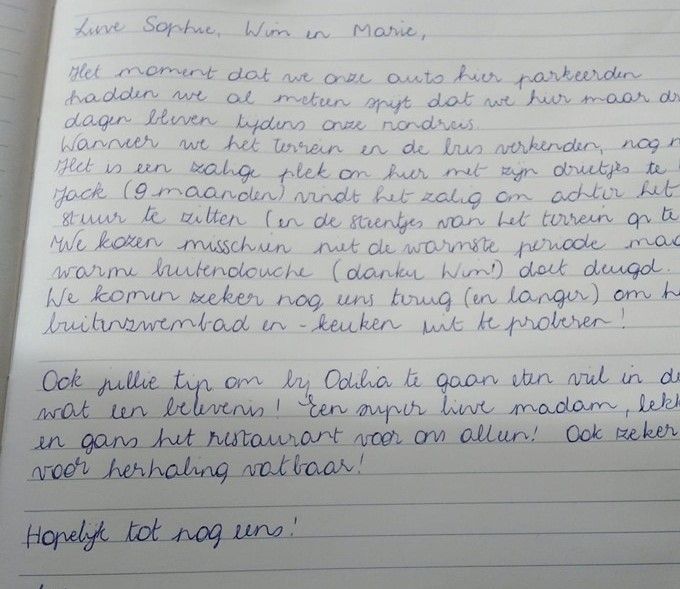 Lieve Sophie, Wim en Marie,
Het moment dat we onze auto hier parkeerden
hadden we al meteen spijt dat we hier maar dr
dagen bleven tijdens onze rondreis.
Wanneer we het terrein en de bus verkenden, nog m
Het is een zalige plek om hier met zijn drietjes te
Jack (9 maanden) vindt het zalig om achter het
stuur te zitten (en de steentjes van het terrein op te
We kozen misschien niet de warmste periode maa
warme buitendouche (danku Wim!) doet deugd.
We komen zeker nog eens terug (en langer) om h
buitenzwembad en -keuken uit te proberen!
Ook jullie tip om bij Odilia te gaan eten viel in de
wat een belevenis! Een super lieve madam, lekk
en gans het restaurant voor ons alleen! Ook zeker
voor herhaling vatbaar!
Hopelijk tot nog eens!